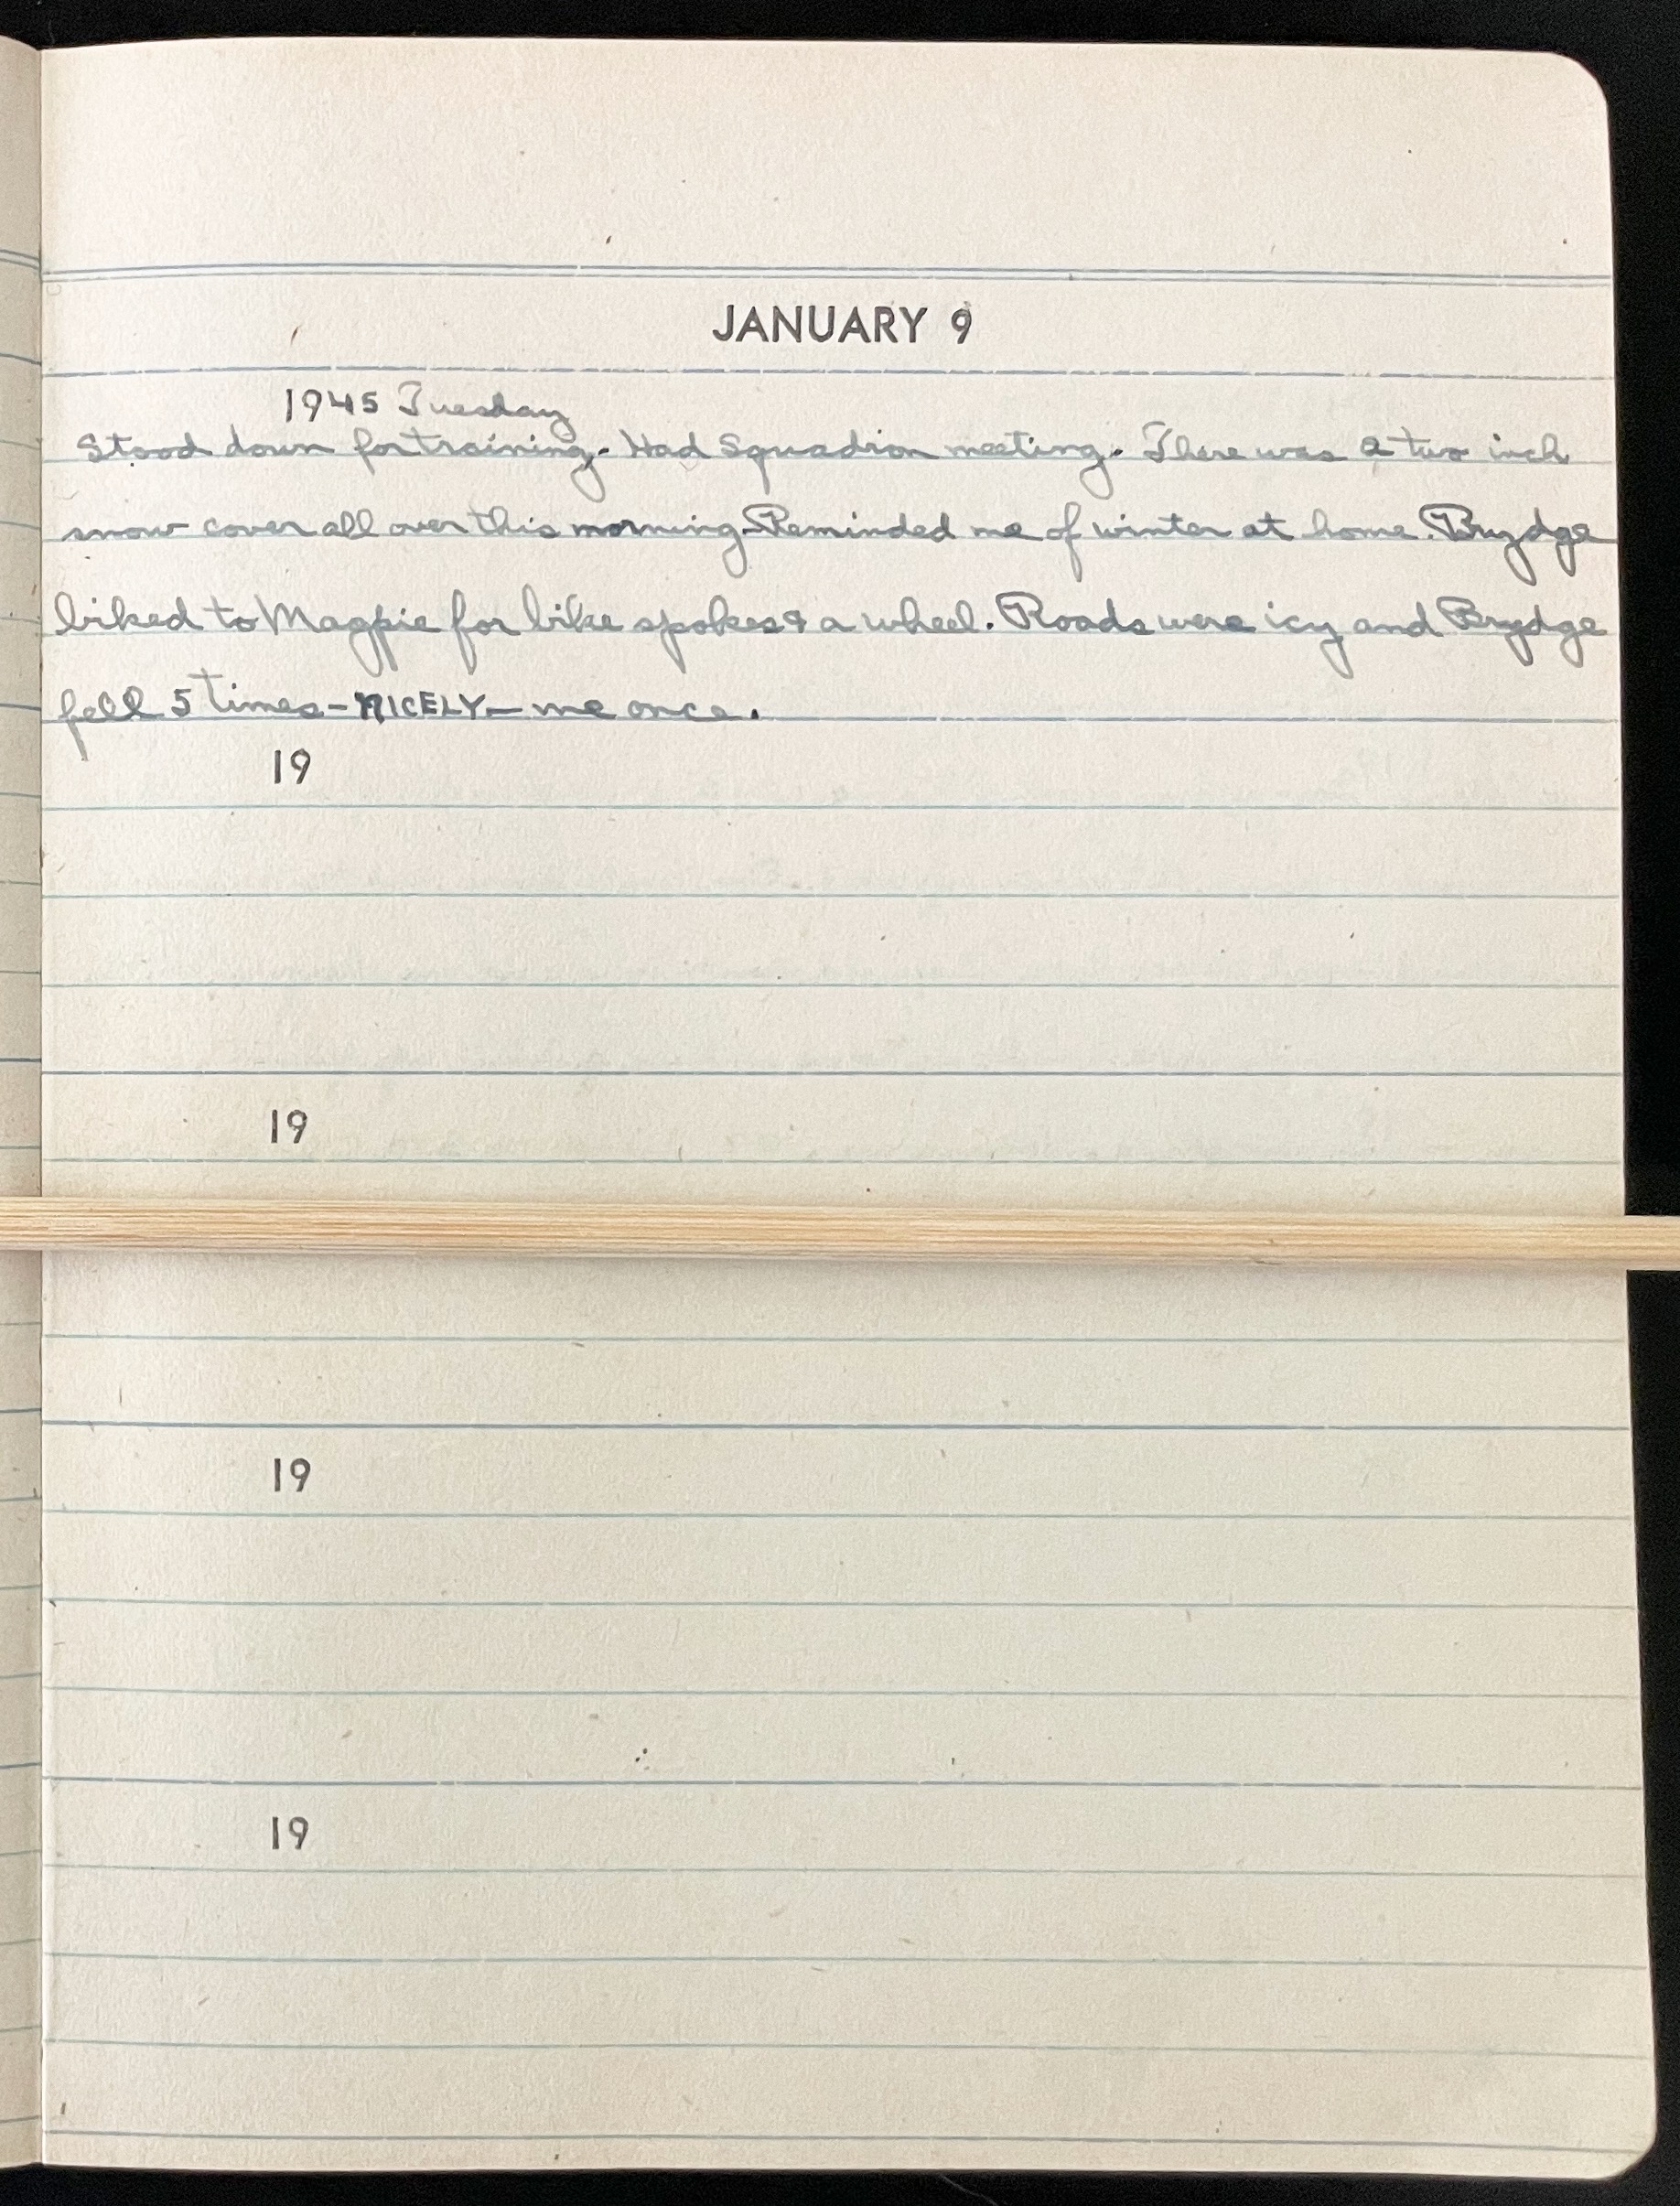 JANUARY 9
1945 Tuesday
Stood down for training. Had Squadron meeting. There was a two inch
snow cover all over this morning. Reminded me of winter at home. Brydge
biked to Magpie for bike spokes & a wheel. Roads were icy and Brydge
fell 5 times - NICELY - me once.
19
19
19
19